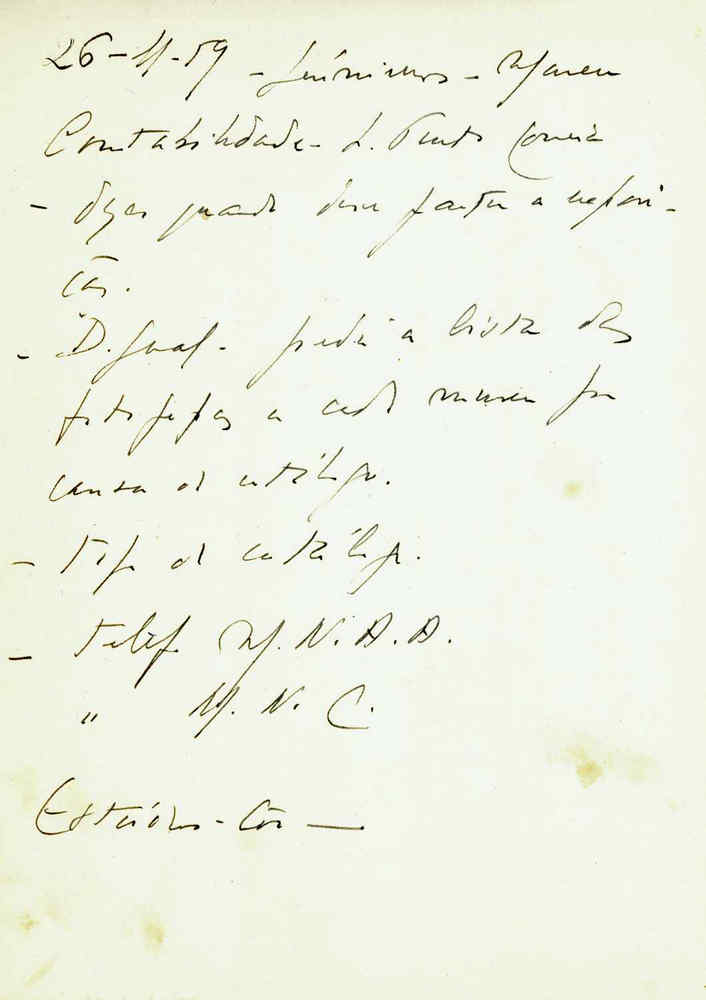 26-11-59 - Jerónimos - Museu
Contabilidade - L. Pinto Correia
- dizer quando devo factu a
- D. Gral - pedir a lista das
fotografias a cada museu por
causa do catálogo.
- tipo de catálogo.
- telef. M. N. A. A.
" M. N. C.
Estúdio - Côr —